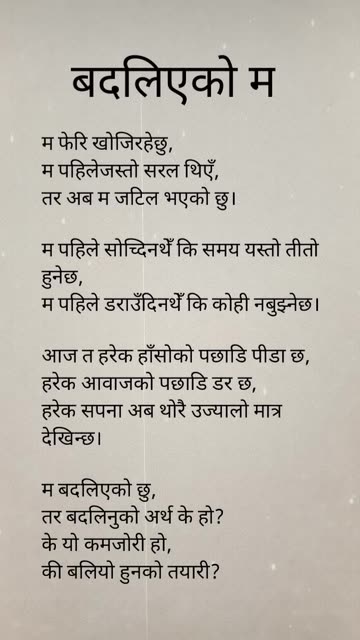 बदलिएको म
म फेरि खोजिरहेछु,
म पहिलेजस्तो सरल थिएँ,
तर अब म जटिल भएको छु।
म पहिले सोच्दिनथेँ कि समय यस्तो तीतो
हुनेछ,
म पहिले डराउँदिनथेँ कि कोही नबुझ्नेछ।
आज त हरेक हाँसोको पछाडि पीडा छ,
हरेक आवाजको पछाडि डर छ,
हरेक सपना अब थोरै उज्यालो मात्र
देखिन्छ।
म बदलिएको छु,
तर बदलिनुको अर्थ के हो?
के यो कमजोरी हो,
की बलियो हुनको तयारी?